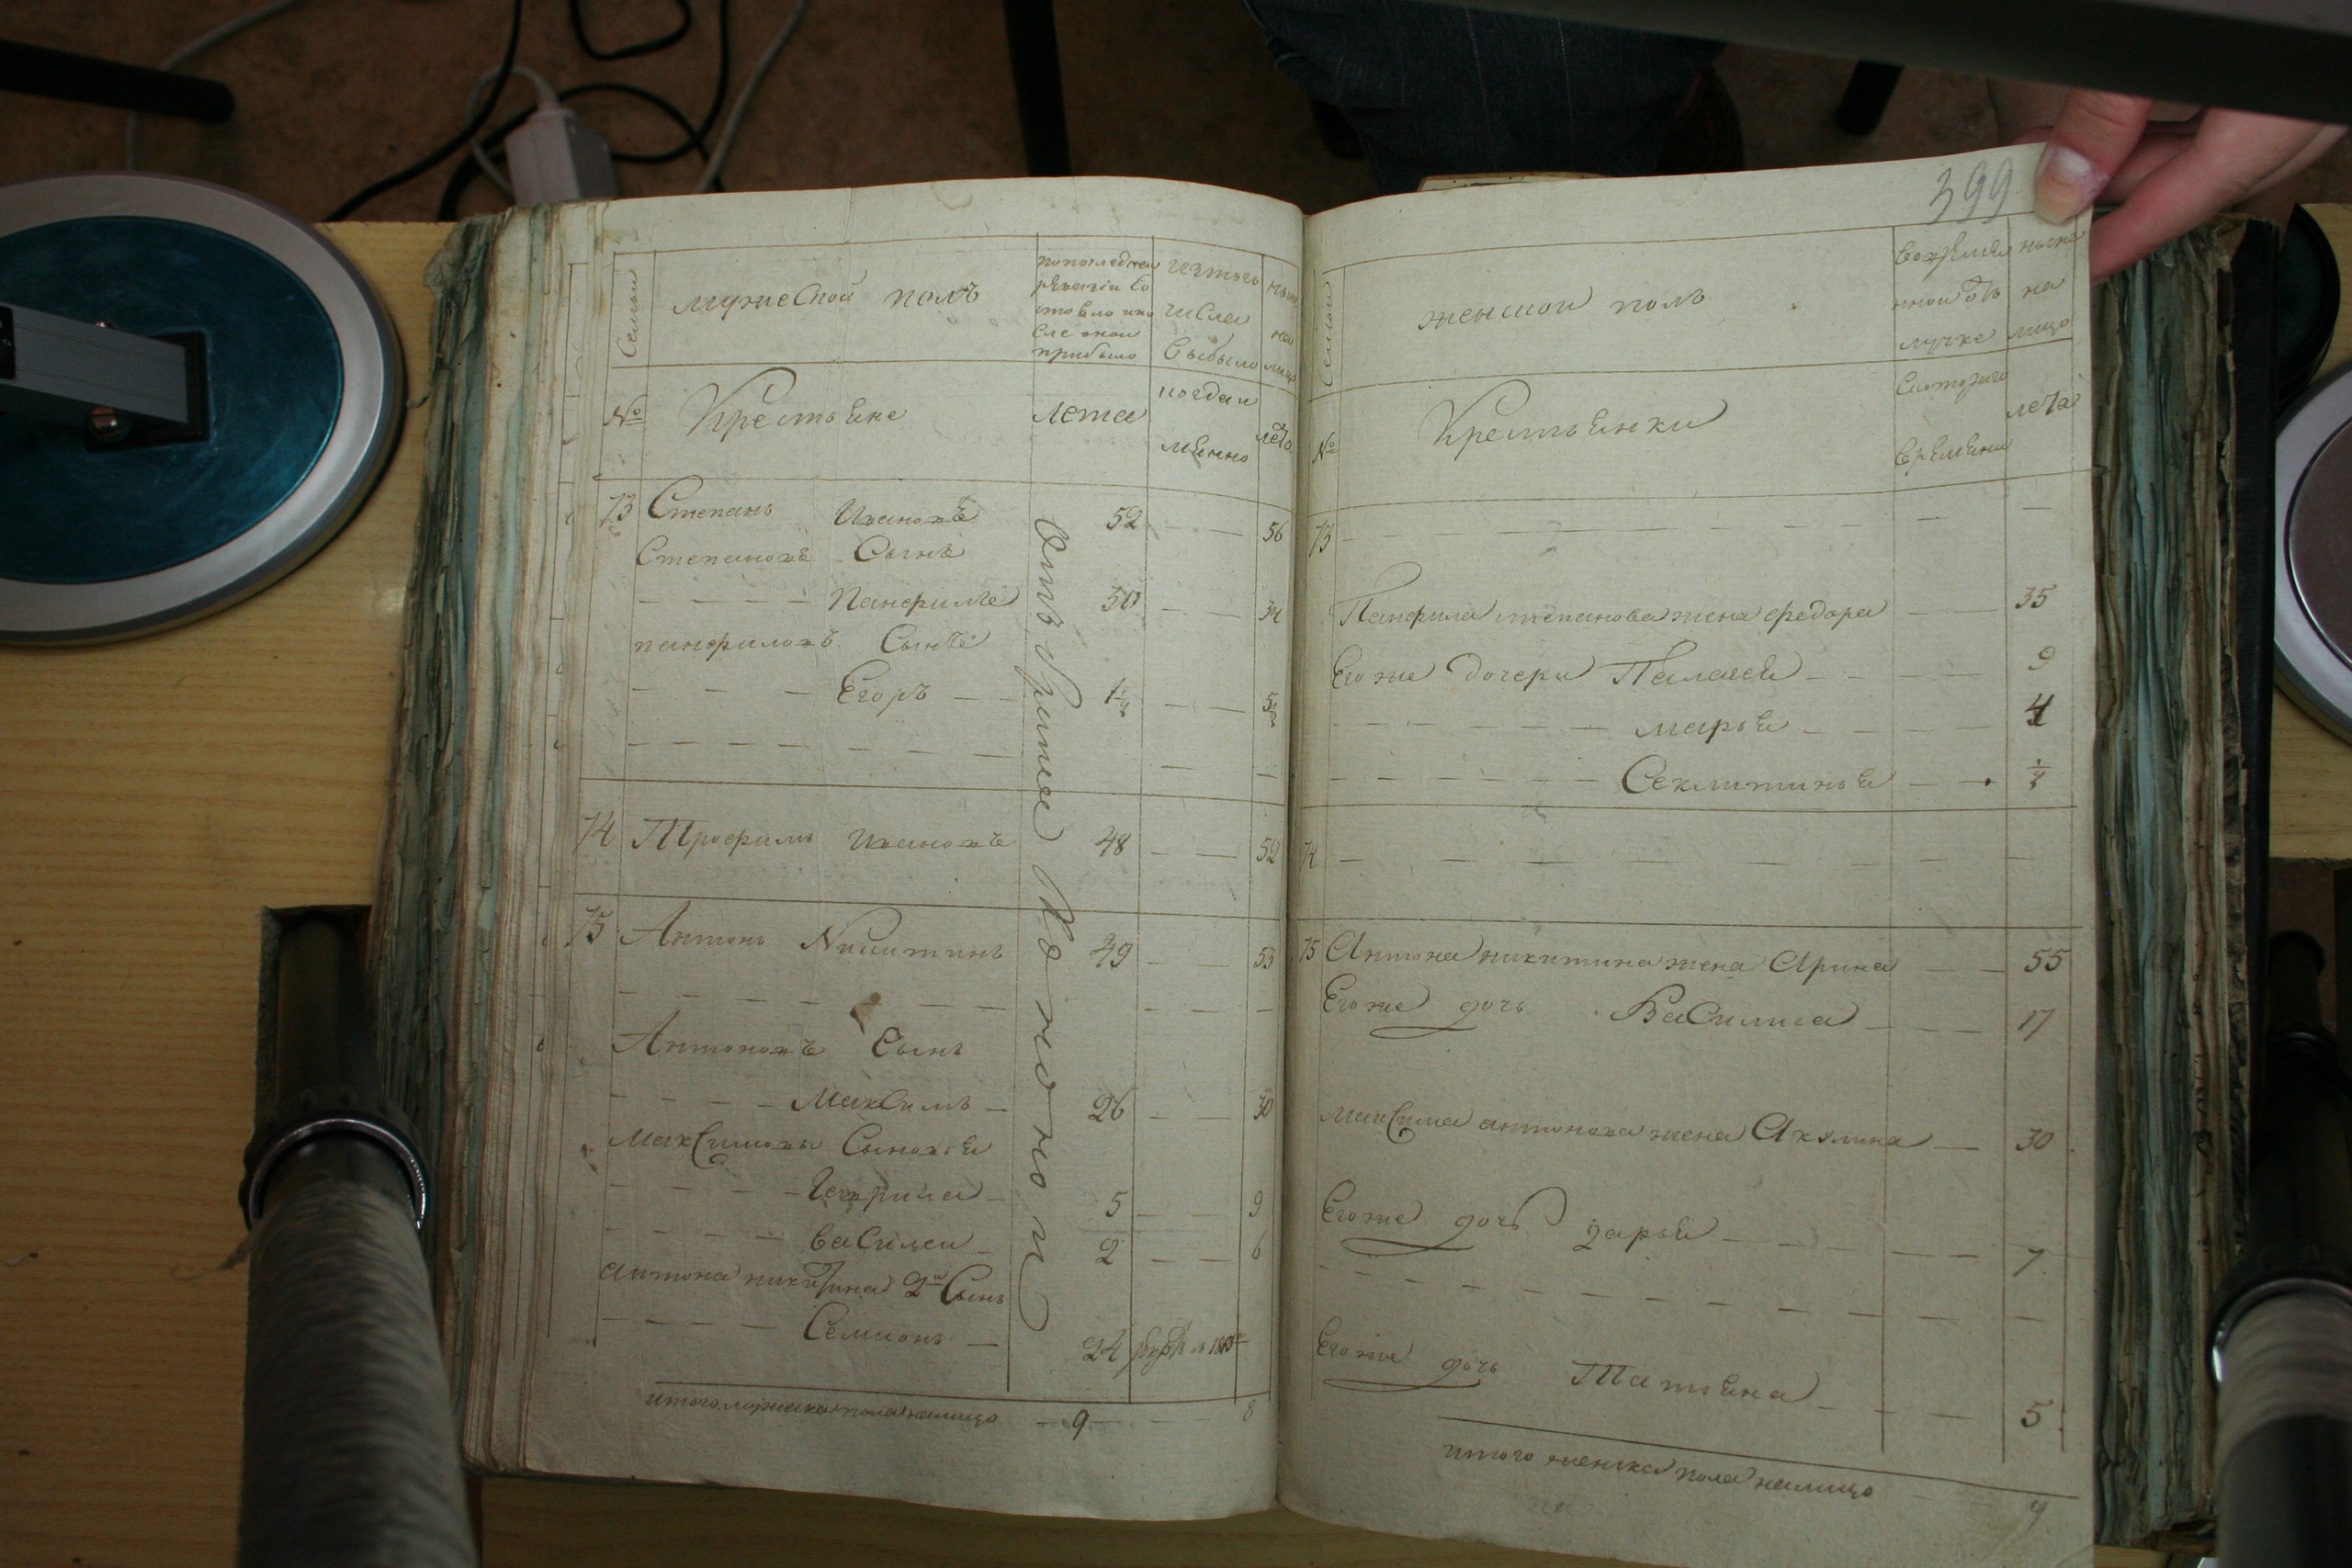 399
Семьи
мужеской полъ
по последней
ревизiи со
стояло и по
сле оной
прибыло
изтого
числа
выбыло
ныне
на
лицо
№
Крестьяне
лета
когда и
мянно
лета
73 Степанъ Ивановъ 52 — — 56
Степановъ Сынъ
— — — — Панфилъ 30 — — 34
панфиловъ Сынъ
— — — — Егоръ — — 1½ — — 5½
74 Трофимъ Ивановъ 48 — — 52
75 Антонъ Никитинъ 49 — — 53
Антоновъ Сынъ
— — — — Максимъ — 26 — — 30
Максимовы Сыновья
— — — — Гаврила — 5 — — 9
— — — — василеи — 2 — — 6
антона никитина 2й Сынъ
— — — — Семионъ — 24
итого мужска пола налицо — 9 — — 8
Семьи
женской полъ
во време
нной отъ
лучке
ныне
на
лицо
№
Крестьянки
Скоторого
времени
лета
73 — — — — — — — —
Панфила степанова жена федора — — 35
Его же дочери Палагея — — — 9
— — — — — — марья — — — 4
— — — — — — Секлитинья — — ½
74 — — — — — — — —
75 Антона никитина жена Арина — — 55
Его же дочь Василиса — — — 17
Максима антонова жена Акулина — 30
Его же дочь дарья — — — — — 7
Его же дочь Татьяна — — — 5
итого женска пола налицо — — 9